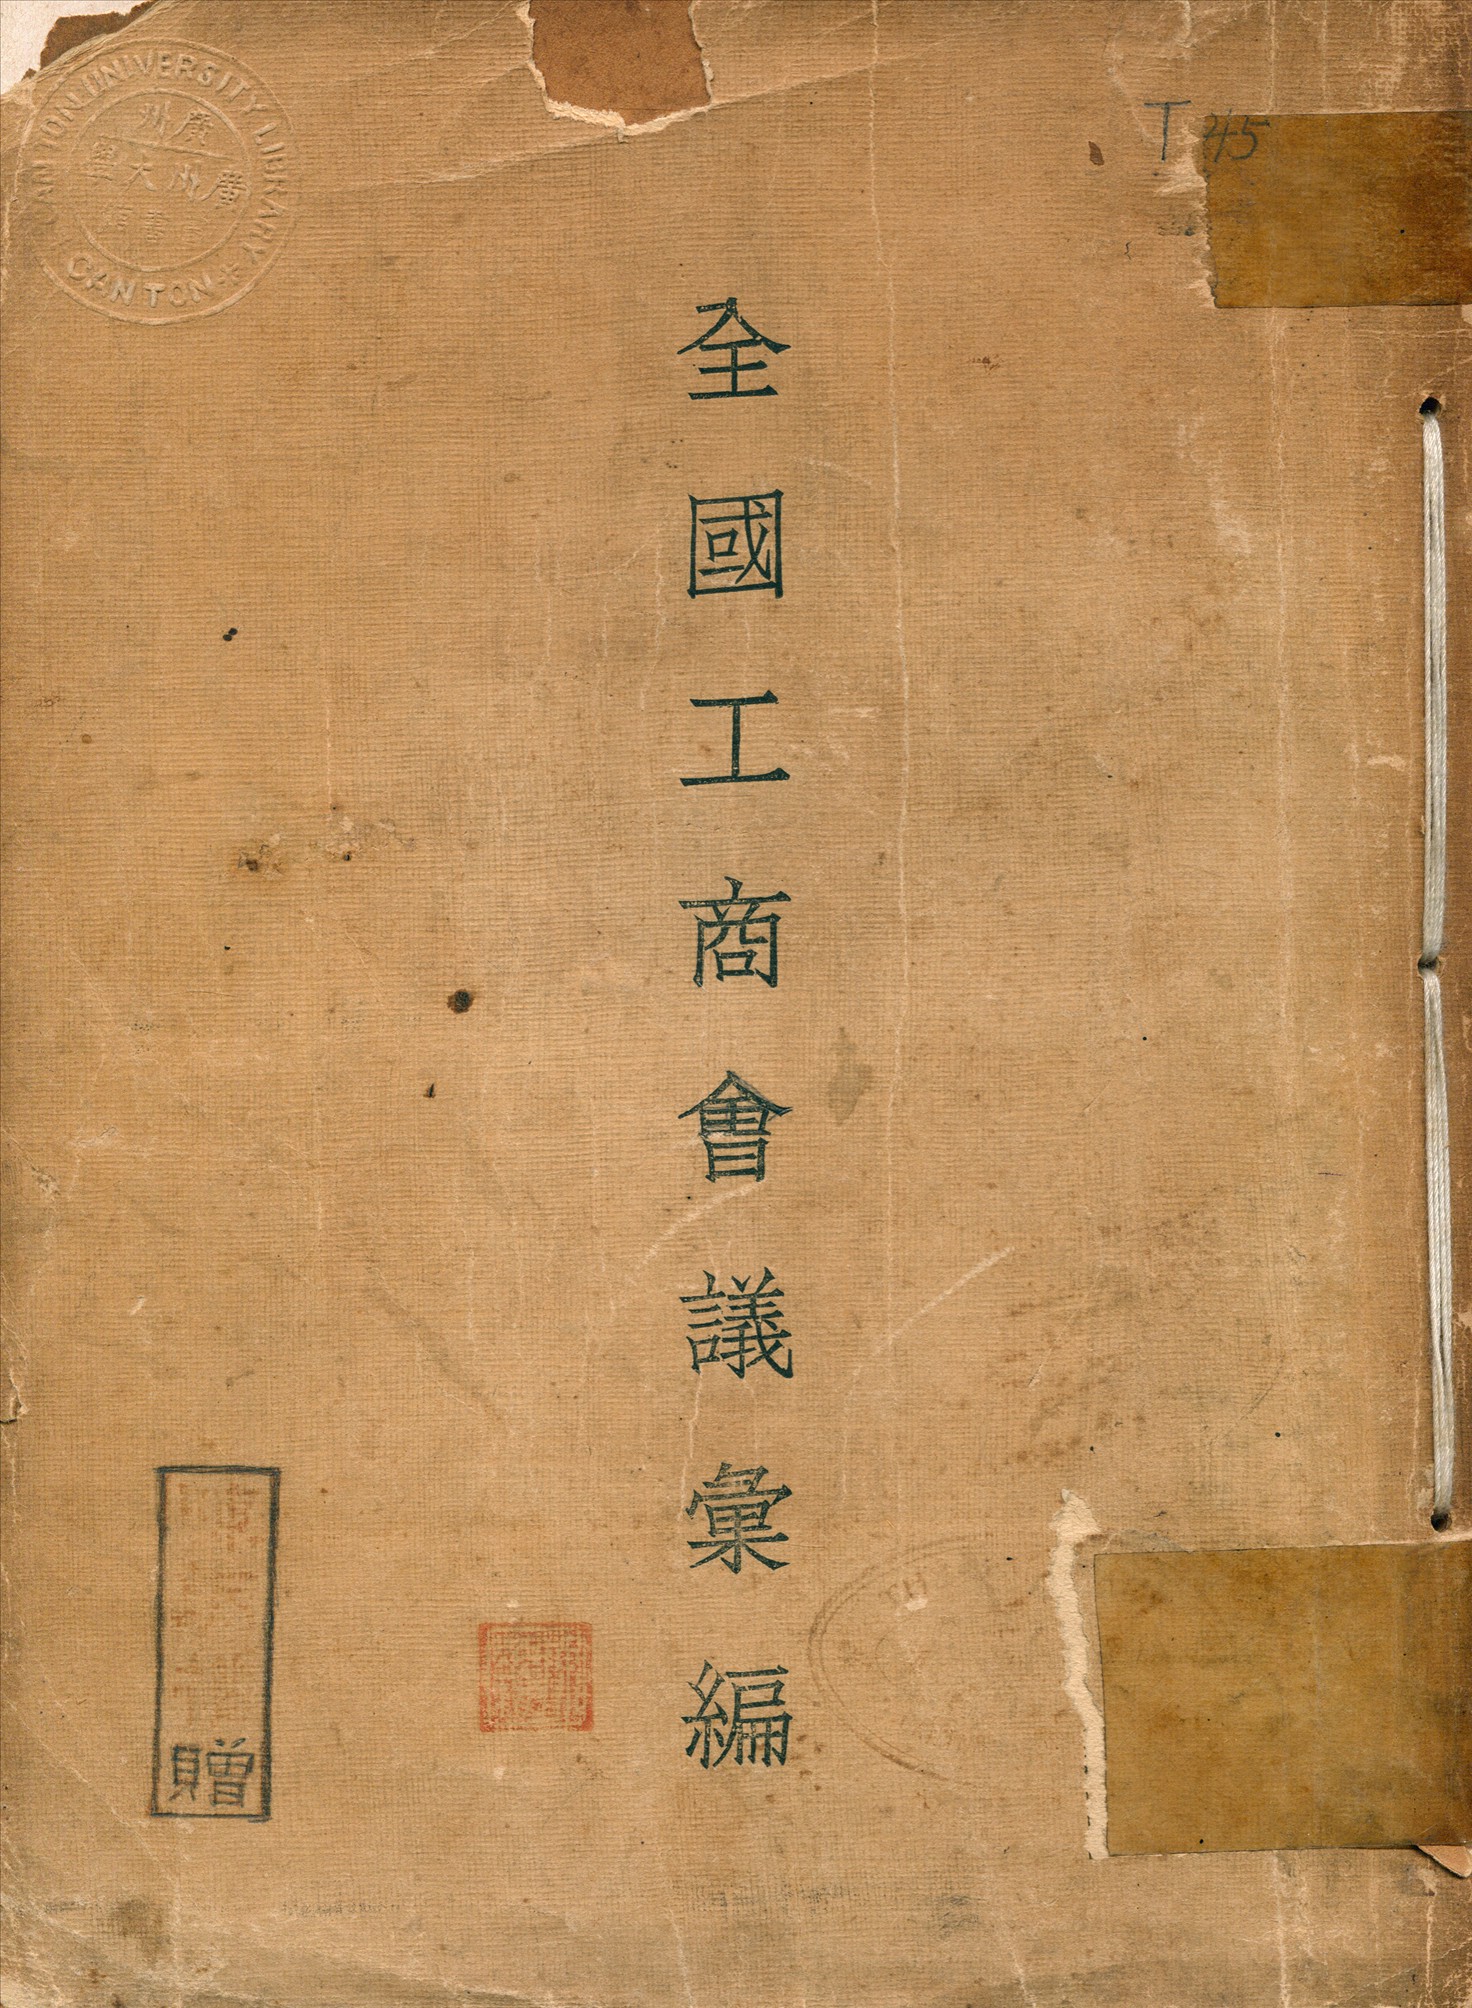 T 45
全國工商會議彙編
CANTON UNIVERSITY LIBRARY
CANTON
廣州
廣州大學
圖書館
贈